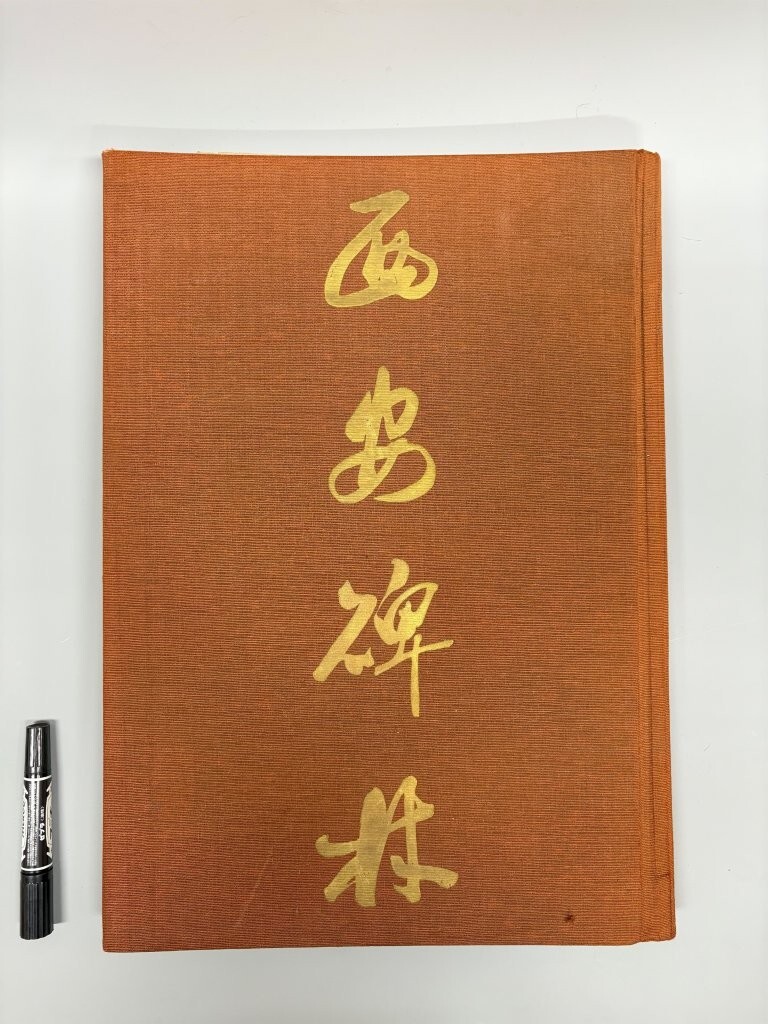 西安碑林